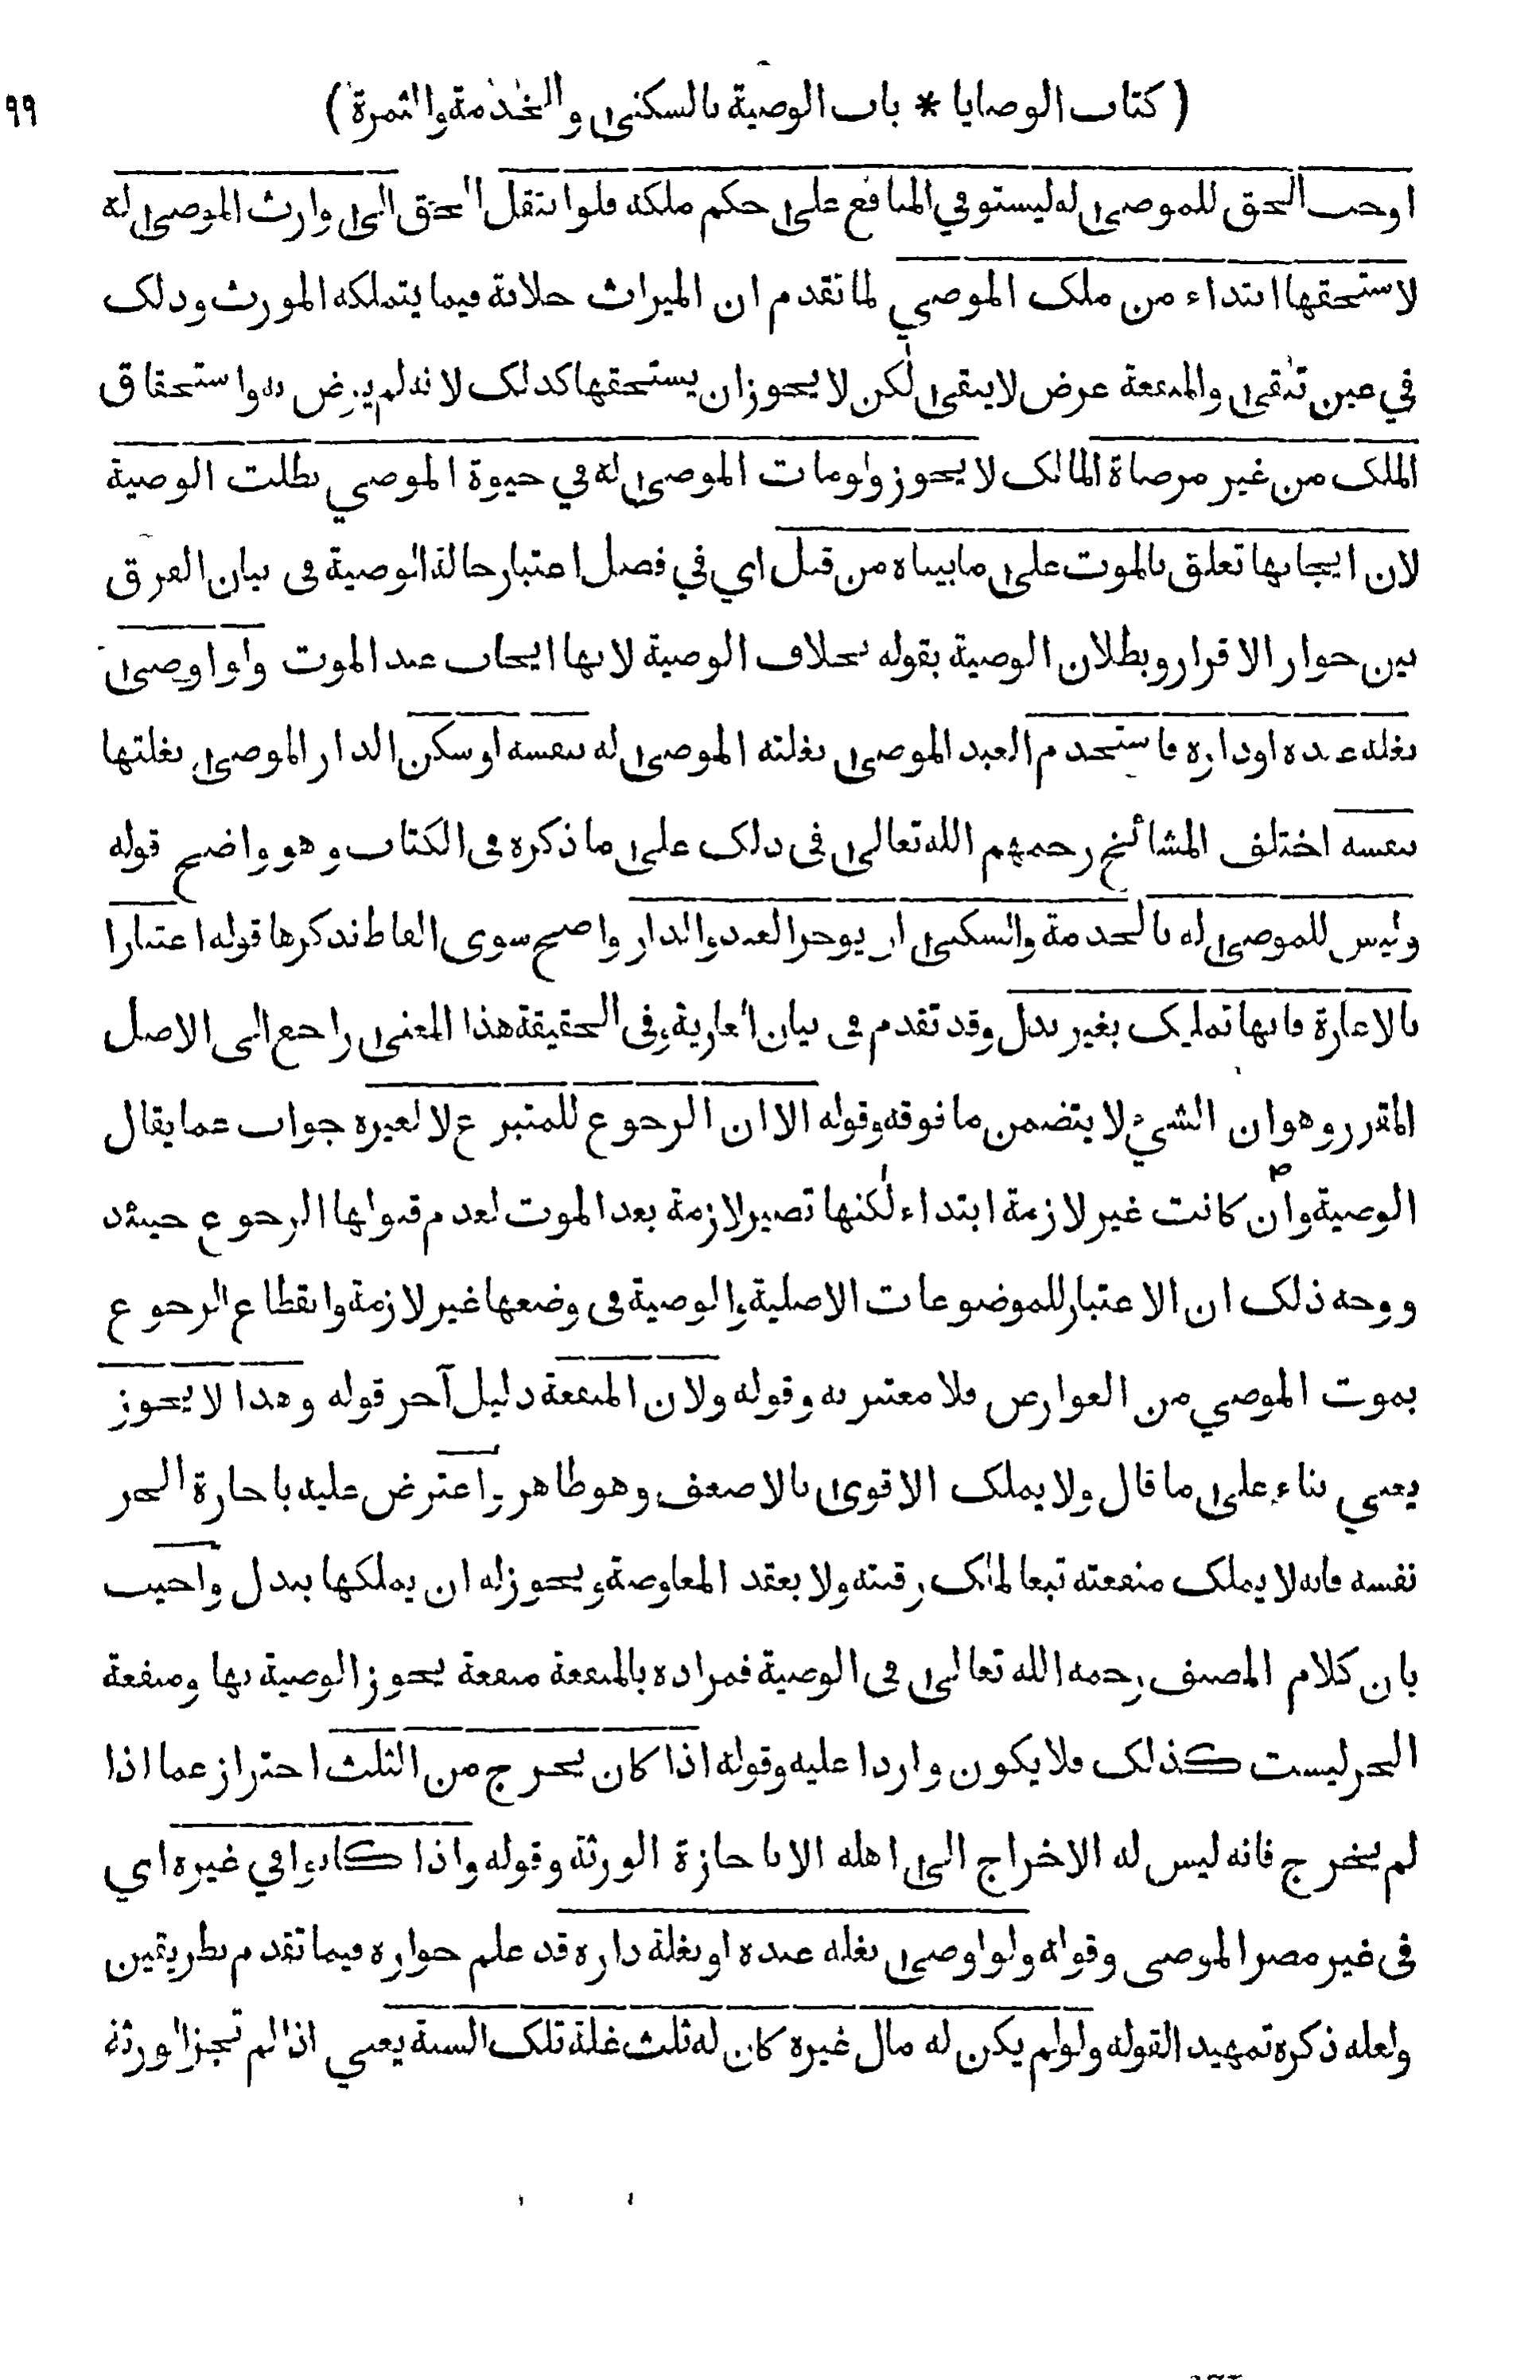 ٩٩
( كتاب الوصايا * باب الوصية بالسكنى والخدمة والثمرة )
اوجب الحق للموصى له ليستوفي المنافع على حكم ملكه فلو انتقل الحق الى وارث الموصى له
لاستحقها ابتداء من ملك الموصي لما تقدم ان الميراث خلافة فيما يتملكه المورث وذلك
في عين تبقى والمنفعة عرض لا يبقى لكن لا يجوز ان يستحقها كذلك لانه لم يرض به واستحقاق
الملك من غير مرضاة المالك لا يجوز ولو مات الموصى له في حيوة الموصي بطلت الوصية
لان ايجابها تعلق بالموت على ما بيناه من قبل اي في فصل اعتبار حالة الوصية في بيان الفرق
بين جواز الاقرار وبطلان الوصية بقوله بخلاف الوصية لانها ايجاب عند الموت ولو اوصى
بغلة عبده او داره فاستخدم العبد الموصى بغلته الموصى له بنفسه او سكن الدار الموصى بغلتها
بنفسه اختلف المشائخ رحمهم الله تعالى في ذلك على ما ذكره في الكتاب وهو واضح قوله
وليس للموصى له بالخدمة والسكنى ان يوجر العبد والدار واضح سوى الفاظ نذكرها قوله اعتبارا
بالاعارة فانها تمليك بغير بدل وقد تقدم في بيان العارية وفي الحقيقة هذا المعنى راجع الى الاصل
المقرر وهو ان الشيء لا يتضمن ما فوقه وقوله الا ان الرجوع للمتبرع لا لغيره جواب عما يقال
الوصية وان كانت غير لازمة ابتداء لكنها تصير لازمة بعد الموت لعدم قبولها الرجوع حينئذ
ووجه ذلك ان الاعتبار للموضوعات الاصلية والوصية في وضعها غير لازمة وانقطاع الرجوع
بموت الموصي من العوارض فلا معتبر به وقوله ولان المنفعة دليل آخر قوله وهذا لا يجوز
يعني بناء على ما قال ولا يملك الاقوى بالاضعف وهو ظاهر واعترض عليه باجارة الحر
نفسه فانه لا يملك منفعته تبعا لملك رقبته ولا بعقد المعاوضة ويجوز له ان يملكها ببدل واجيب
بان كلام المصنف رحمه الله تعالى في الوصية فمراده بالمنفعة منفعة يجوز الوصية بها ومنفعة
الحر ليست كذلك فلا يكون واردا عليه وقوله اذا كان يخرج من الثلث احتراز عما اذا
لم يخرج فانه ليس له الاخراج الى اهله الا باجازة الورثة وقوله واذا كانوا في غيره اي
في غير مصر الموصى وقوله ولو اوصى بغلة عبده او بغلة داره قد علم جوازه فيما تقدم بطريقين
ولعله ذكره تمهيدا لقوله ولو لم يكن له مال غيره كان له ثلث غلة تلك السنة يعني اذا لم تجز الورثة